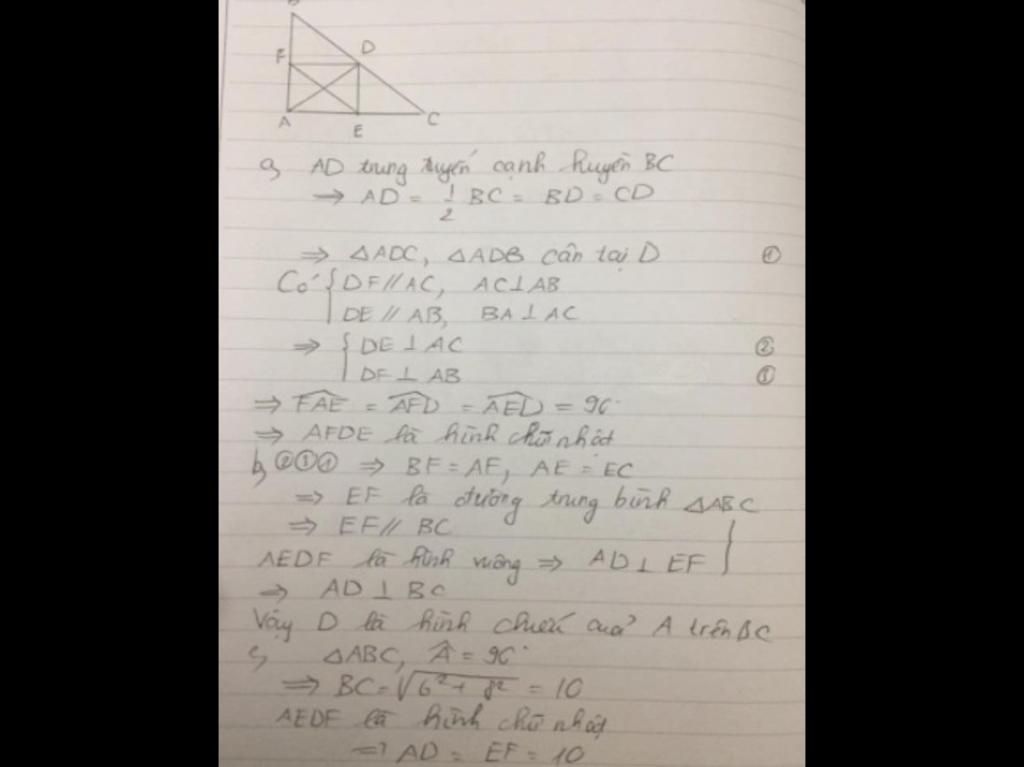 F
D
A
E
C
a, AD trung tuyến cạnh huyền BC
⇒ AD = 1/2 BC = BD = CD
⇒ △ADC, △ADB cân tại D ①
Có { DF // AC, AC ⊥ AB
DE // AB, BA ⊥ AC
⇒ { DE ⊥ AC ②
DF ⊥ AB ①
⇒ FAE = AFD = AED = 90°
⇒ AFDE là hình chữ nhật
b, ②①① ⇒ BF = AF, AE = EC
⇒ EF là đường trung bình △ABC
⇒ EF // BC
AEDF là hình vuông ⇒ AD ⊥ EF }
⇒ AD ⊥ BC
Vậy D là hình chiếu của A trên BC
c, △ABC, Â = 90°
⇒ BC = √6² + 8² = 10
AEDF là hình chữ nhật
⇒ AD = EF = 10